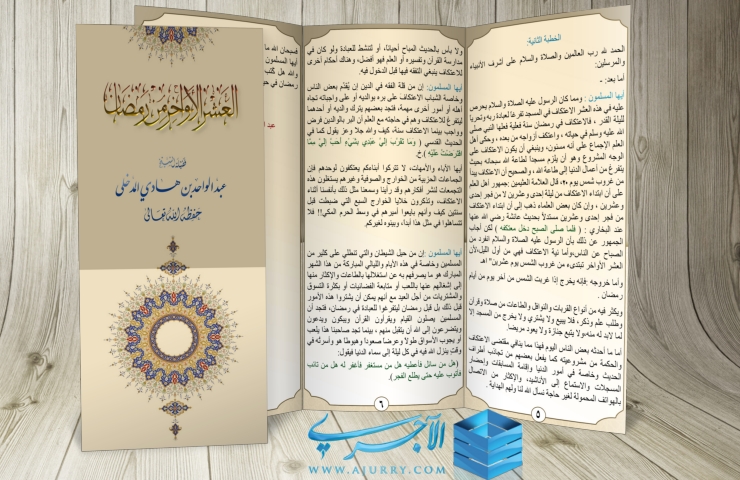 العشر الأواخر من رمضان
لفضيلة الشيخ
عبد الواحد بن هادي المدخلي
حفظه الله تعالى
فسبحان الله ما
أيها المسلمون
والله هل كُتب
رمضان في حي
ولا بأس بالحديث المباح أحيانًا، أو لتنشط للعبادة ولو كان في
مدارسة القرآن وتفسيره أو العلم فهو أفضل، وهناك أحكام أخرى
للاعتكاف ينبغي التفقه فيها قبل الدخول فيه.
أيها المسلمون: إن من قلة الفقه في الدين إن يُقدّم بعض الناس
وخاصة الشباب الاعتكاف على بره بوالديه أو على واجباته تجاه
أهله أو أمور أخرى مهمة، فتجد بعضهم يترك والديه أو أحدهما
ليتفرغ للاعتكاف وهم في حاجته مع العلم أن البر بالوالدين فرض
وواجب بينما الاعتكاف سنة، كيف والله جلا وعز يقول كما في
الحديث القدسي ( وَمَا تَقَرَّبَ إِلَيَّ عَبْدِي بِشَيْءٍ أَحَبَّ إِلَيَّ مِمَّا
افْتَرَضْتُ عَلَيْهِ )خ.
أيها الآباء والأمهات، لا تتركوا أبناءكم يعتكفون لوحدهم فإن
الجماعات الحزبية من الخوارج والصوفية وغيرهم يستغلون هذه
التجمعات لنشر أفكارهم وقد رأينا وسمعنا مثل ذلك بأنفسنا أثناء
الاعتكاف، وتذكرون خلايا الخوارج السبع التي ضبطت قبل
سنتين كيف وأنهم بايعوا أميرهم في وسط الحرم المكي!! فلا
تتساهلوا في مثل هذا أبدا، وبينوه لغيركم.
أيها المسلمون :إن من حيل الشيطان والتي تنطلي على كثير من
المسلمين وخاصة في هذه الأيام والليالي المباركة من هذا الشهر
المبارك هو ما يصرفهم به عن استغلالها بالطاعات والإكثار منها
إلى إشغالهم عنها باللعب أو متابعة الفضائيات أو بكثرة التسوق
والمشتريات من أجل العيد مع أنهم يمكن أن يشتروا هذه الأمور
قبل ذلك بل قبل رمضان ليتفرغوا للعبادة في رمضان، فتجد أن
المسلمين يصلون القيام ويقرأون القرآن ويبكون ويدعون
ويتضرعون إلى الله أن يتقبل منهم ، بينما تجد صاحبنا هذا يلعب
أو يجوب الأسواق طولا وعرضا صعودا وهبوطا هو وأسرته في
وقت ينزل الله فيه في كل ليلة إلى سماء الدنيا فيقول:
(هل من سائل فأعطيه هل من مستغفر فأغفر له هل من تائب
فأتوب عليه حتى يطلع الفجر).
٦
الخطبة الثانية:
الحمد لله رب العالمين والصلاة والسلام على أشرف الأنبياء
والمرسلين:
أما بعد: ـ
أيها المسلمون : ومما كان الرسول عليه الصلاة والسلام يحرص
عليه في هذه العشر الاعتكاف في المسجد تفرغا لعبادة ربه وتحرياً
لليلة القدر ، فالاعتكاف في رمضان سنة فعلية فعلها النبي صلى
الله عليه وسلم في حياته ، واعتكف أزواجه من بعده ، وحكى أهل
العلم الإجماع على أنه مسنون، وينبغي أن يكون الاعتكاف على
الوجه المشروع وهو أن يلزم مسجدا لطاعة الله سبحانه بحيث
يتفرغ من أعمال الدنيا إلى طاعة الله ، والصحيح أن الاعتكاف يبدأ
من غروب شمس يوم ٢٠، قال العلامة العثيمين: جمهور أهل العلم
على أن ابتداء الاعتكاف من ليلة إحدى وعشرين لا من فجر إحدى
وعشرين ، وإن كان بعض العلماء ذهب إلى أن ابتداء الاعتكاف
من فجر إحدى وعشرين مستدلاً بحديث عائشة رضي الله عنها
عند البخاري : ( فلما صلى الصبح دخل معتكفه ) لكن أجاب
الجمهور عن ذلك بأن الرسول عليه الصلاة والسلام انفرد من
الصباح عن الناس،وأما نية الاعتكاف فهي من أول الليل،لأن
العشر الأواخر تبتدىء من غروب الشمس يوم عشرين" اهـ
وأما خروجه :فإنه يخرج إذا غربت الشمس من آخر يوم من أيام
رمضان .
ويكثر فيه من أنواع القربات والنوافل والطاعات من صلاة وقرآن
وطلب علم وذكر، فلا يبيع ولا يشتري ولا يخرج من المسجد إلا
لما لابد له منه،ولا يتبع جنازة ولا يعود مريضا.
أما ما أحدثه بعض الناس اليوم فهذا مما ينافي مقتضى الاعتكاف
والحكمة من مشروعيته كما يفعل بعضهم من تجاذب أطراف
الحديث وخاصة في أمور الدنيا وإقامة المسابقات وإحضار
المسجلات والاستماع إلى الأناشيد، والإكثار من الاتصال
بالهواتف المحمولة لغير حاجة نسأل الله لنا ولهم الهداية .
٥
الآجري
WWW.AJURRY.COM